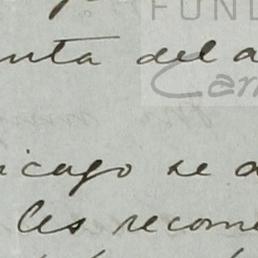 FUND
nta del a
Car
icago se a
les recome